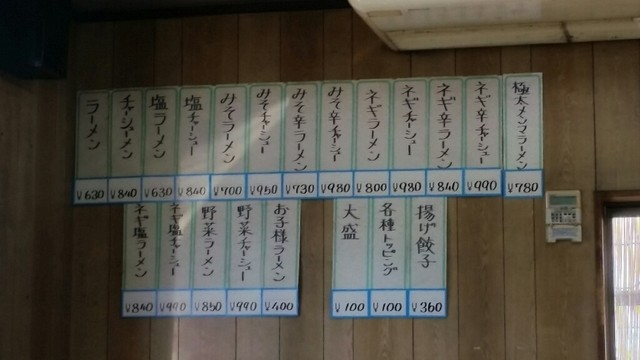 ラーメン
¥630
チャーシューメン
¥840
塩ラーメン
¥630
塩チャーシュー
¥840
みそラーメン
¥700
みそチャーシュー
¥950
みそ辛ラーメン
¥730
みそ辛チャーシュー
¥980
ネギラーメン
¥800
ネギチャーシュー
¥980
ネギ辛ラーメン
¥840
ネギ辛チャーシュー
¥990
極太メンマラーメン
¥780
ネギ塩ラーメン
¥840
ネギ塩チャーシュー
¥990
野菜ラーメン
¥850
野菜チャーシュー
¥990
お子様ラーメン
¥400
大盛
¥100
各種トッピング
¥100
揚げ餃子
¥360